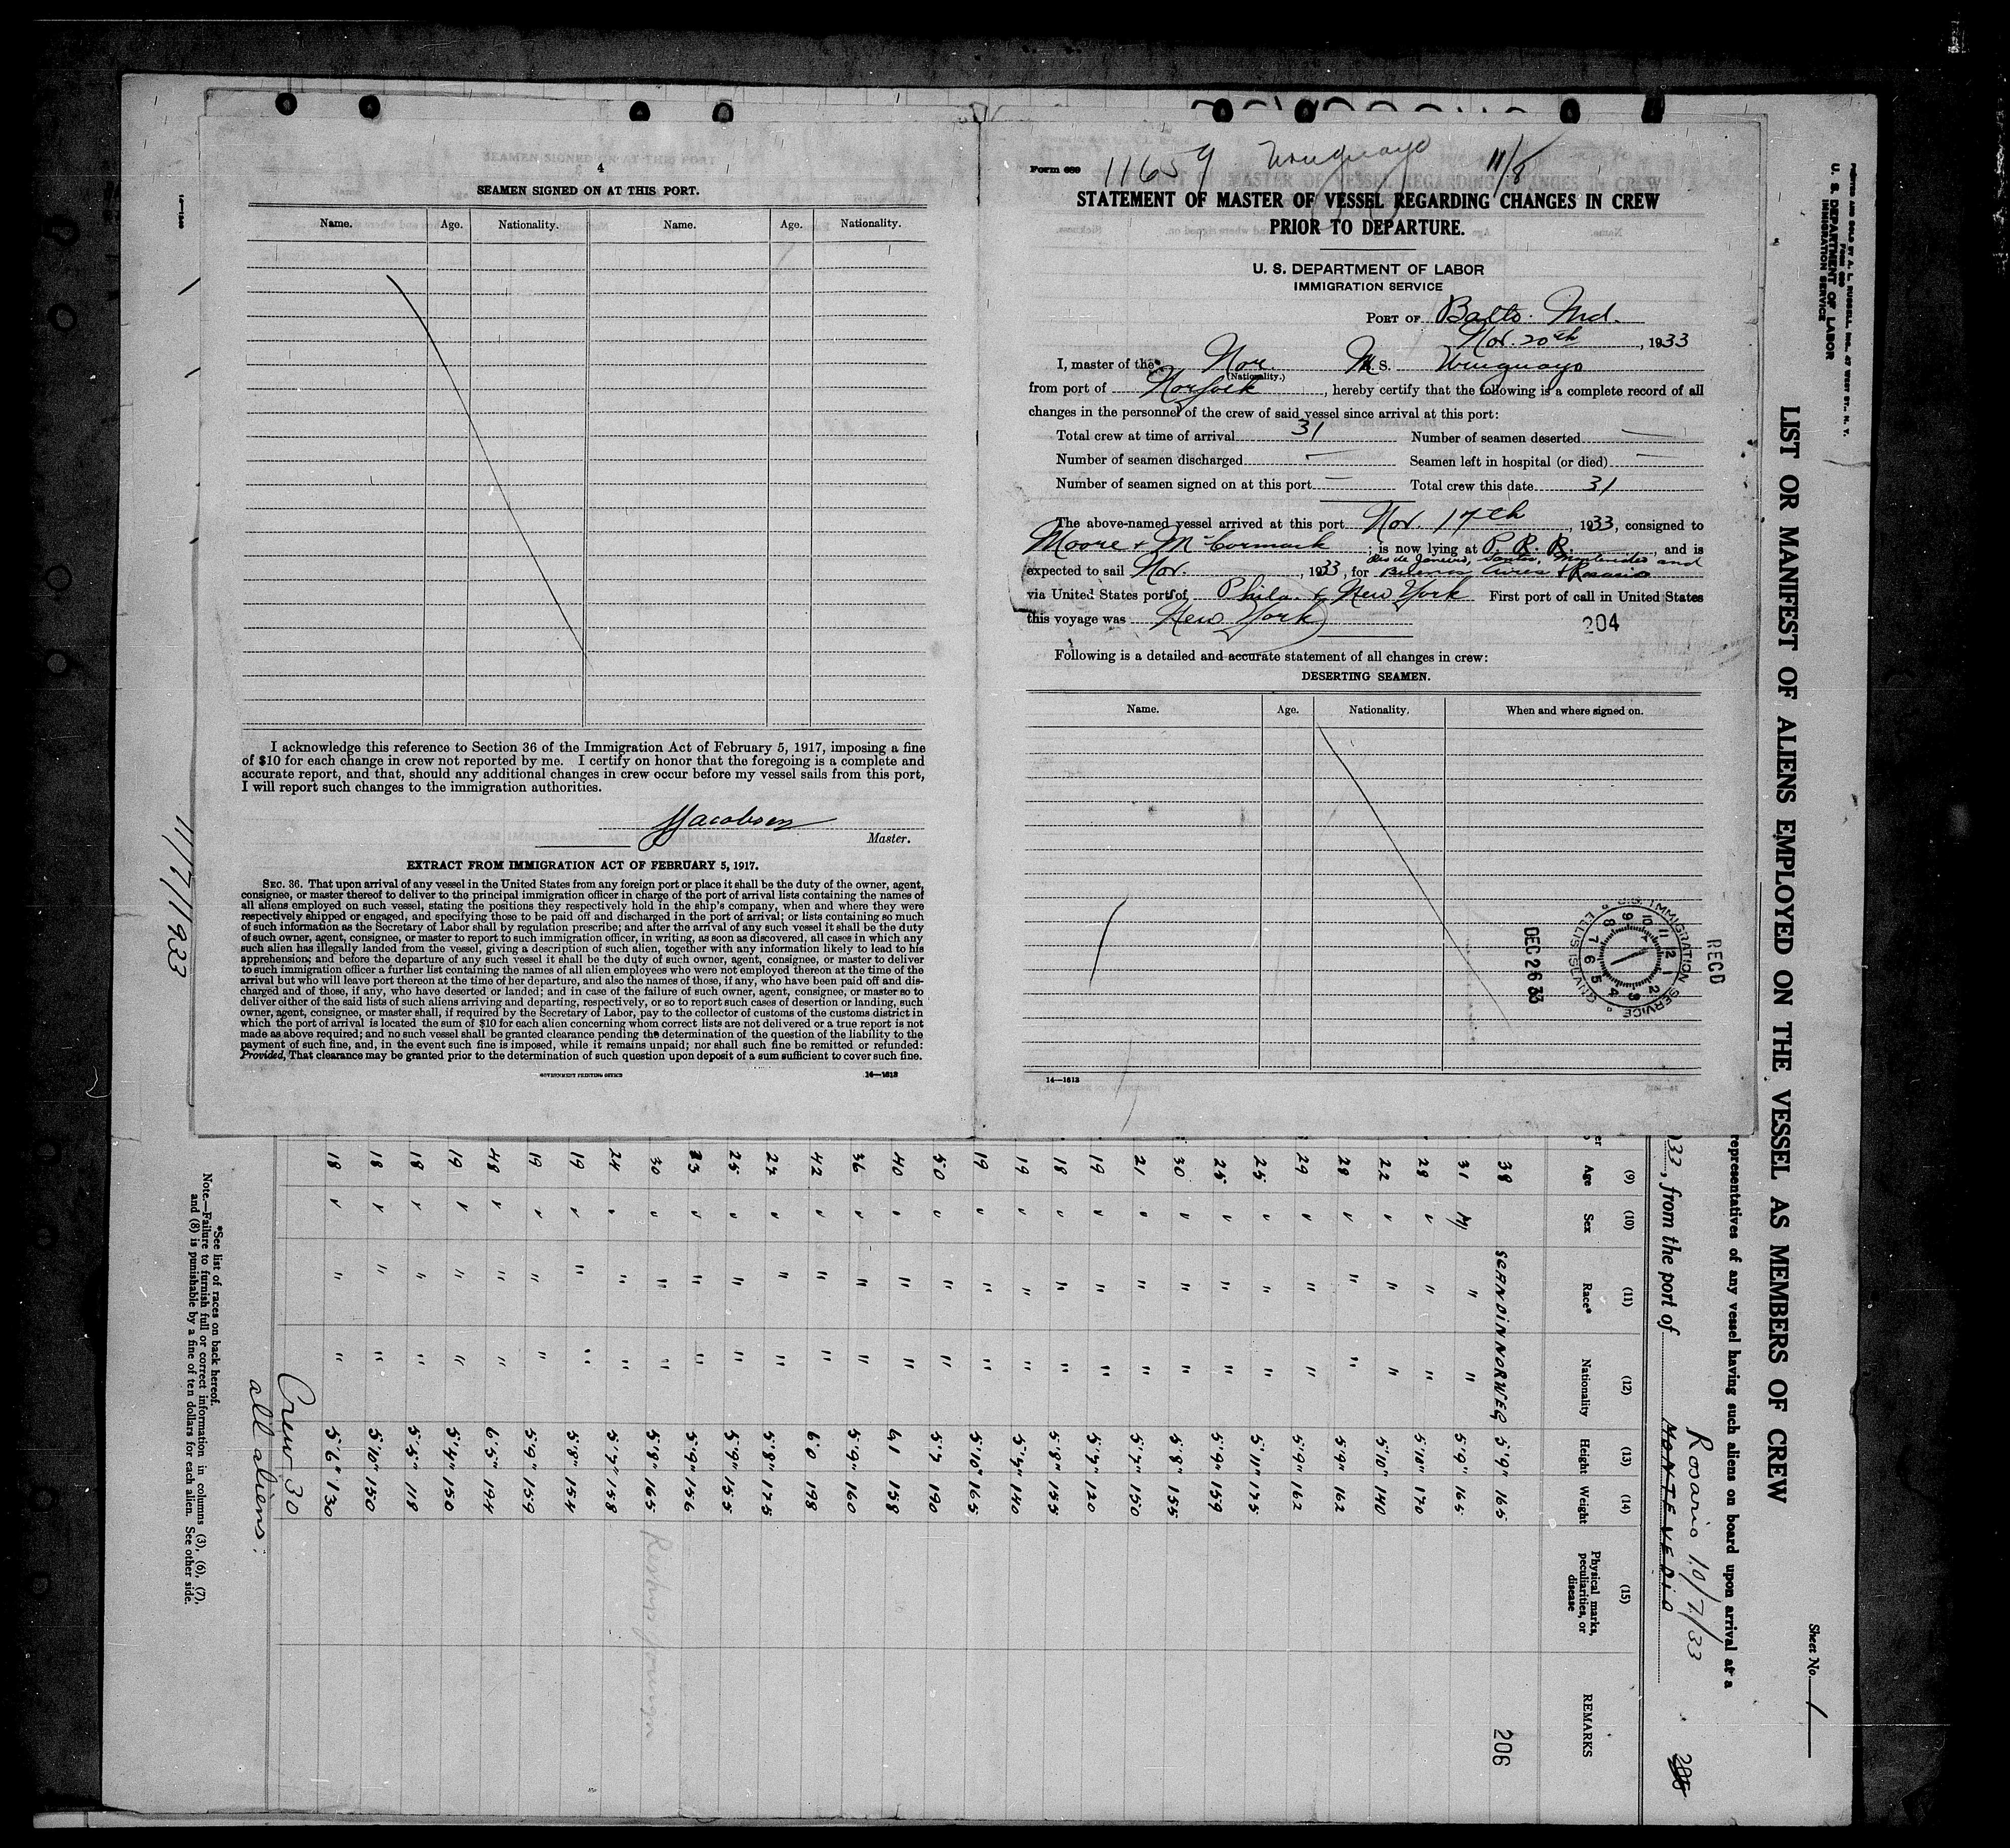 4
SEAMEN SIGNED ON AT THIS PORT.
Name. Age. Nationality. Name. Age. Nationality.
I acknowledge this reference to Section 36 of the Immigration Act of February 5, 1917, imposing a fine
of $10 for each change in crew not reported by me. I certify on honor that the foregoing is a complete and
accurate report, and that, should any additional changes in crew occur before my vessel sails from this port,
I will report such changes to the immigration authorities.
Jacobsen
Master.
EXTRACT FROM IMMIGRATION ACT OF FEBRUARY 5, 1917.
SEC. 36. That upon arrival of any vessel in the United States from any foreign port or place it shall be the duty of the owner, agent,
consignee, or master thereof to deliver to the principal immigration officer in charge of the port of arrival lists containing the names of
all aliens employed on such vessel, stating the positions they respectively hold in the ship's company, when and where they were
respectively shipped or engaged, and specifying those to be paid off and discharged in the port of arrival; or lists containing so much
of such information as the Secretary of Labor shall by regulation prescribe; and after the arrival of any such vessel it shall be the duty
of such owner, agent, consignee, or master to report to such immigration officer, in writing, as soon as discovered, all cases in which any
such alien has illegally landed from the vessel, giving a description of such alien, together with any information likely to lead to his
apprehension; and before the departure of any such vessel it shall be the duty of such owner, agent, consignee, or master to deliver
to such immigration officer a further list containing the names of all alien employees who were not employed thereon at the time of the
arrival but who will leave port thereon at the time of her departure, and also the names of those, if any, who have been paid off and dis-
charged and of those, if any, who have deserted or landed; and in case of the failure of such owner, agent, consignee, or master so to
deliver either of the said lists of such aliens arriving and departing, respectively, or so to report such cases of desertion or landing, such
owner, agent, consignee, or master shall, if required by the Secretary of Labor, pay to the collector of customs of the customs district in
which the port of arrival is located the sum of $10 for each alien concerning whom correct lists are not delivered or a true report is not
made as above required; and no such vessel shall be granted clearance pending the determination of the question of the liability to the
payment of such fine, and, in the event such fine is imposed, while it remains unpaid; nor shall such fine be remitted or refunded:
Provided, That clearance may be granted prior to the determination of such question upon deposit of a sum sufficient to cover such fine.
GOVERNMENT PRINTING OFFICE 14—1613
Form 680 11659 Uruguayo 11/8
STATEMENT OF MASTER OF VESSEL REGARDING CHANGES IN CREW
PRIOR TO DEPARTURE.
U. S. DEPARTMENT OF LABOR
IMMIGRATION SERVICE
PORT OF Balto. Md.
Nov. 20th, 1933
I, master of the Nor. M. S. Uruguayo
(Nationality.)
from port of Norfolk, hereby certify that the following is a complete record of all
changes in the personnel of the crew of said vessel since arrival at this port:
Total crew at time of arrival 31 Number of seamen deserted —
Number of seamen discharged — Seamen left in hospital (or died) —
Number of seamen signed on at this port — Total crew this date 31
The above-named vessel arrived at this port Nov. 17th, 1933, consigned to
Moore & McCormack; is now lying at P. R. R., and is
Rio de Janeiro, Santos, Montevideo and
expected to sail Nov., 1933, for Buenos Aires & Rosario
via United States port of Phila. & New York First port of call in United States
this voyage was New York
204
Following is a detailed and accurate statement of all changes in crew:
DESERTING SEAMEN.
Name. Age. Nationality. When and where signed on.
U.S. IMMIGRATION SERVICE ELLIS ISLAND
RECD
DEC 26 33
14—1613
PRINTED AND SOLD BY A. L. RUSSELL, INC., 47 WEST ST., N. Y.
Form 689
U. S. DEPARTMENT OF LABOR
IMMIGRATION SERVICE
LIST OR MANIFEST OF ALIENS EMPLOYED ON THE VESSEL AS MEMBERS OF CREW
Sheet No. 1
representatives of any vessel having such aliens on board upon arrival at a
Rosario 10/7/33
33, from the port of MONTEVEDIO
(9) (10) (11) (12) (13) (14) (15)
Age Sex Race* Nationality Height Weight Physical marks, peculiarities, or disease REMARKS
38 SCANDIN NORWEG 5'9" 165 206
31 M " " 5'9" 165
28 " " " 5'10" 170
22 " " " 5'10" 140
28 " " " 5'9" 162
29 " " " 5'9" 162
25 " " " 5'11" 175
25 " " " 5'9" 159
30 " " " 5'8" 155
21 " " " 5'7" 150
19 " " " 5'7" 120
18 " " " 5'8" 155
19 " " " 5'7" 140
19 " " " 5'10" 165
50 " " " 5'7 190
40 " " " 6'1 158
36 " " " 5'9" 160
42 " " " 6'0 198
22 " " " 5'8" 175
25 " " " 5'9" 155
23 " " " 5'9" 156
30 " " " 5'8" 165
24 " " " 5'7" 158
19 " " " 5'8" 154
19 " " " 5'9" 159
48 " " " 6'5" 194
19 " " " 5'4" 150
18 " " " 5'5" 118
18 " " " 5'10" 150
18 " " " 5'6" 130
Crew 30
all aliens.
*See list of races on back hereof.
Note.—Failure to furnish full or correct information in columns (3), (6), (7),
and (8) is punishable by a fine of ten dollars for each alien. See other side.
11/17/1933